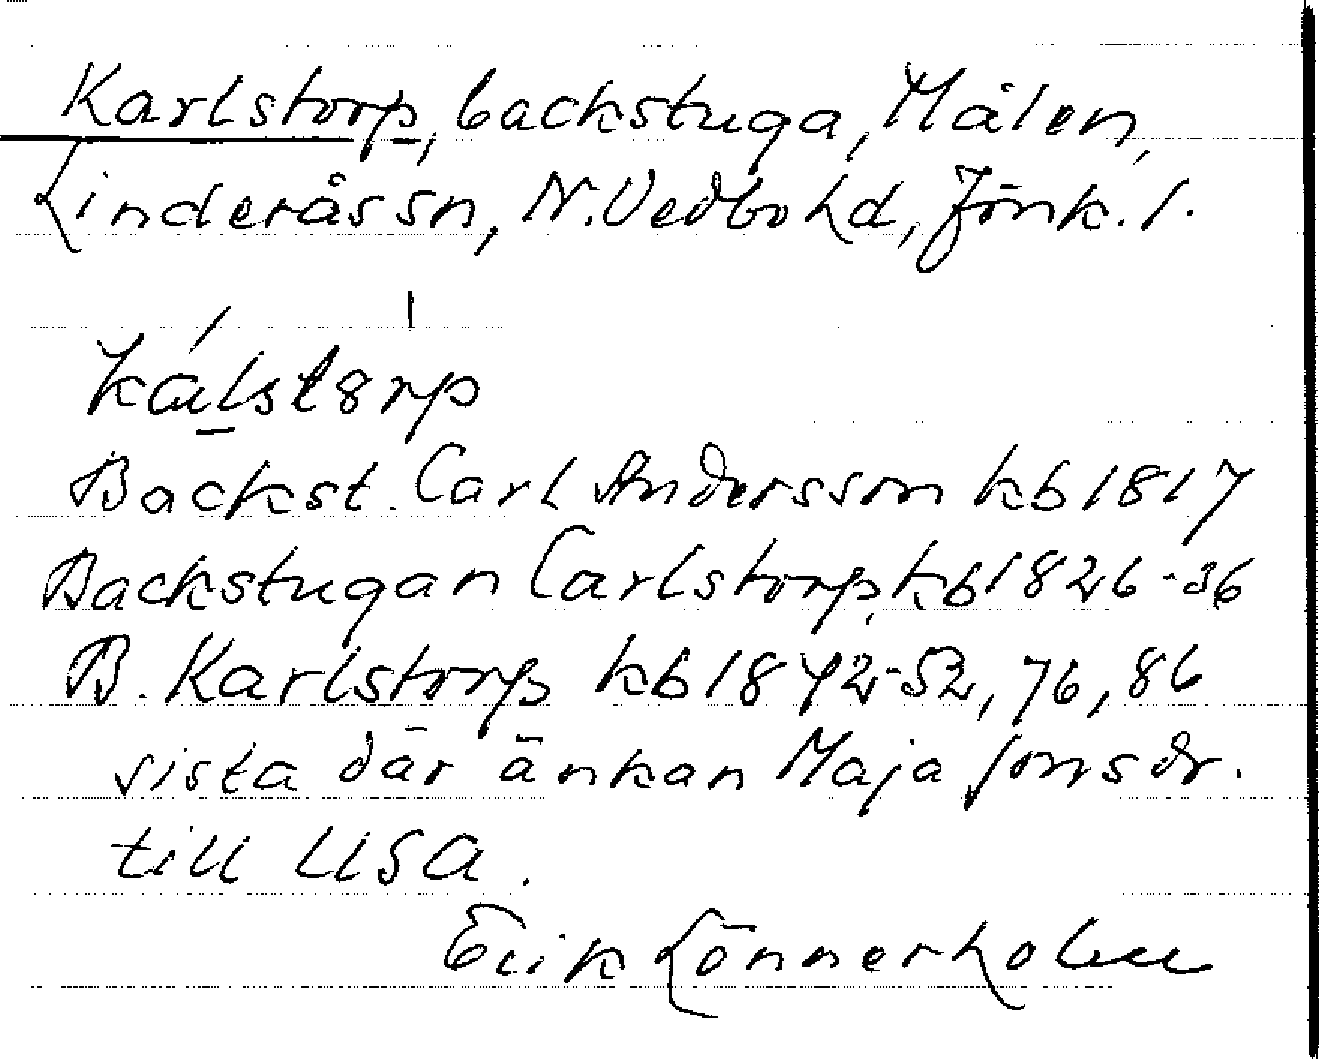 Karlstorp, backstuga, Målen,
Linderås sn, N. Vedbo hd, Jönk. l.
kálstórp
Backst. Carl Andersson kb 1817
Backstugan Carlstorp, kb 1826-36
B. Karlstorp kb 1842-52, 76, 86
sista där änkan Maja Jonsdr.
till USA.
Erik Lönnerholm